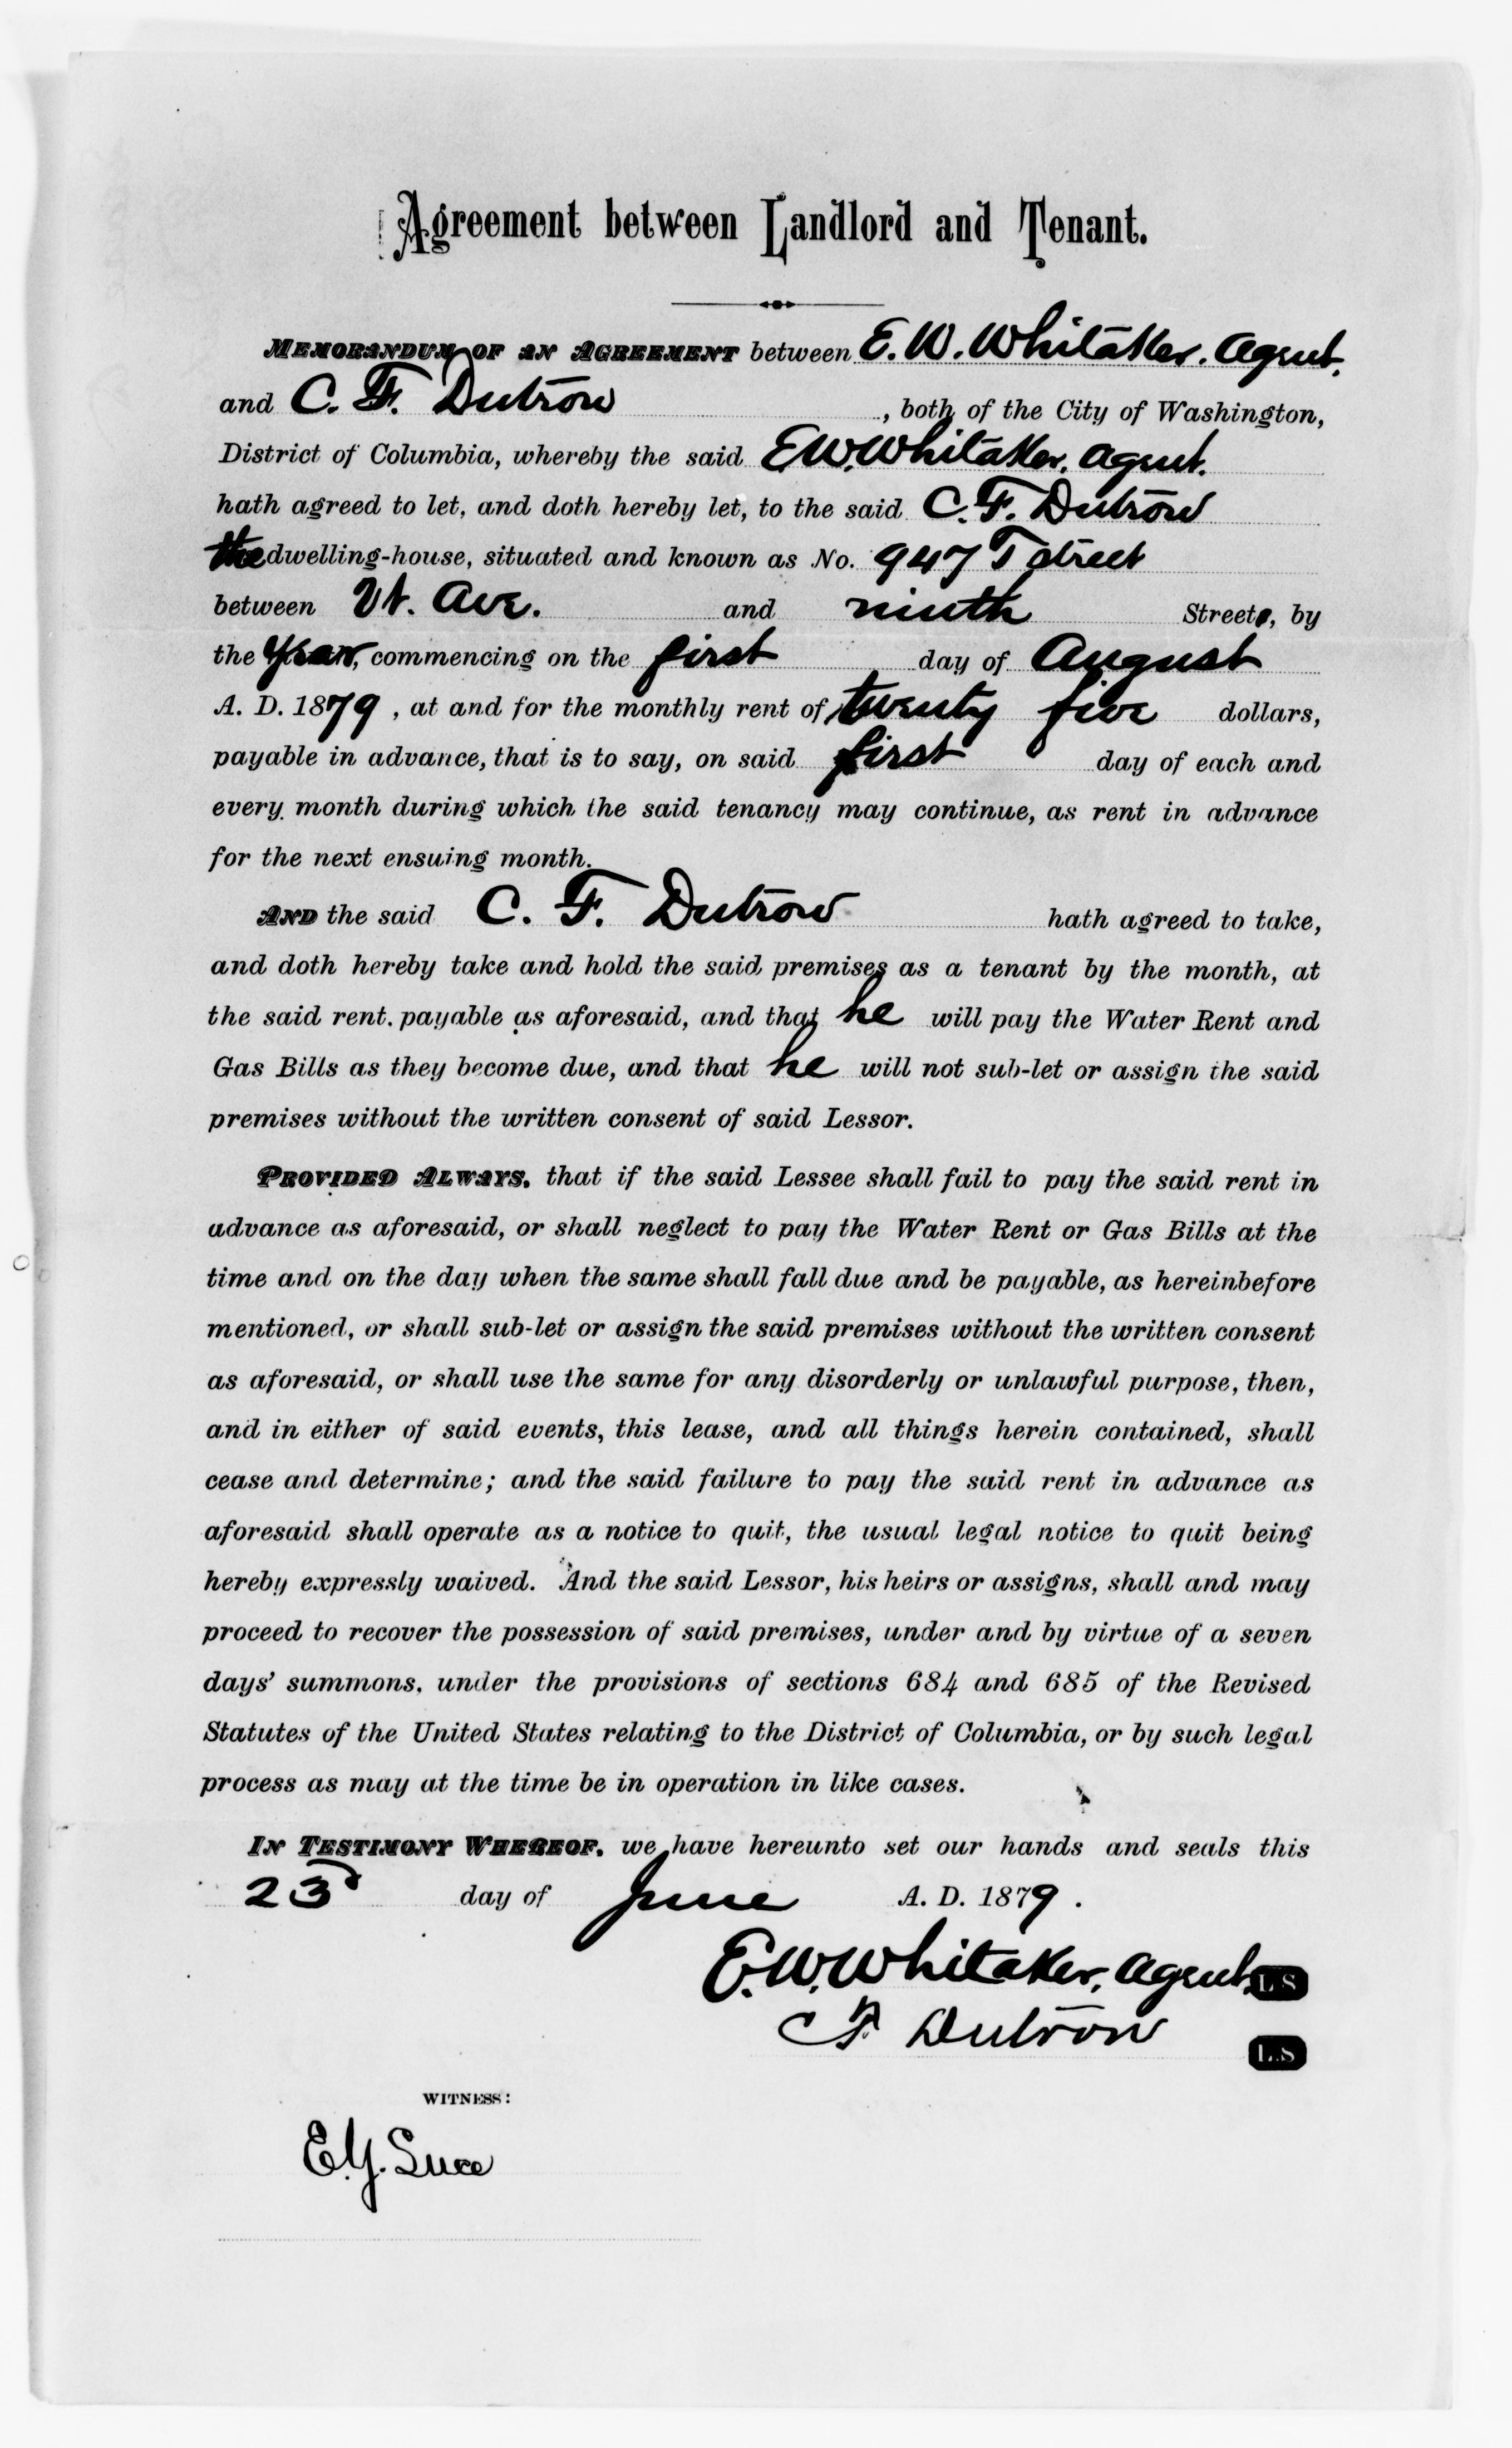 Agreement between Landlord and Tenant.
MEMORANDUM OF AN AGREEMENT between E. W. Whitaker. Agent.
and C. F. Dutrow , both of the City of Washington,
District of Columbia, whereby the said E. W. Whitaker, Agent.
hath agreed to let, and doth hereby let, to the said C. F. Dutrow
the dwelling-house, situated and known as No. 947 T Street
between Vt. Ave. and ninth Street, by
the Year, commencing on the first day of August
A. D. 1879 , at and for the monthly rent of twenty five dollars,
payable in advance, that is to say, on said first day of each and
every month during which the said tenancy may continue, as rent in advance
for the next ensuing month.
AND the said C. F. Dutrow hath agreed to take,
and doth hereby take and hold the said premises as a tenant by the month, at
the said rent, payable as aforesaid, and that he will pay the Water Rent and
Gas Bills as they become due, and that he will not sub-let or assign the said
premises without the written consent of said Lessor.
PROVIDED ALWAYS, that if the said Lessee shall fail to pay the said rent in
advance as aforesaid, or shall neglect to pay the Water Rent or Gas Bills at the
time and on the day when the same shall fall due and be payable, as hereinbefore
mentioned, or shall sub-let or assign the said premises without the written consent
as aforesaid, or shall use the same for any disorderly or unlawful purpose, then,
and in either of said events, this lease, and all things herein contained, shall
cease and determine; and the said failure to pay the said rent in advance as
aforesaid shall operate as a notice to quit, the usual legal notice to quit being
hereby expressly waived. And the said Lessor, his heirs or assigns, shall and may
proceed to recover the possession of said premises, under and by virtue of a seven
days' summons, under the provisions of sections 684 and 685 of the Revised
Statutes of the United States relating to the District of Columbia, or by such legal
process as may at the time be in operation in like cases.
IN TESTIMONY WHEREOF, we have hereunto set our hands and seals this
23d day of June A. D. 1879 .
E. W. Whitaker, Agent. L S
C F Dutrow
L.S
WITNESS:
E. Y. Luce